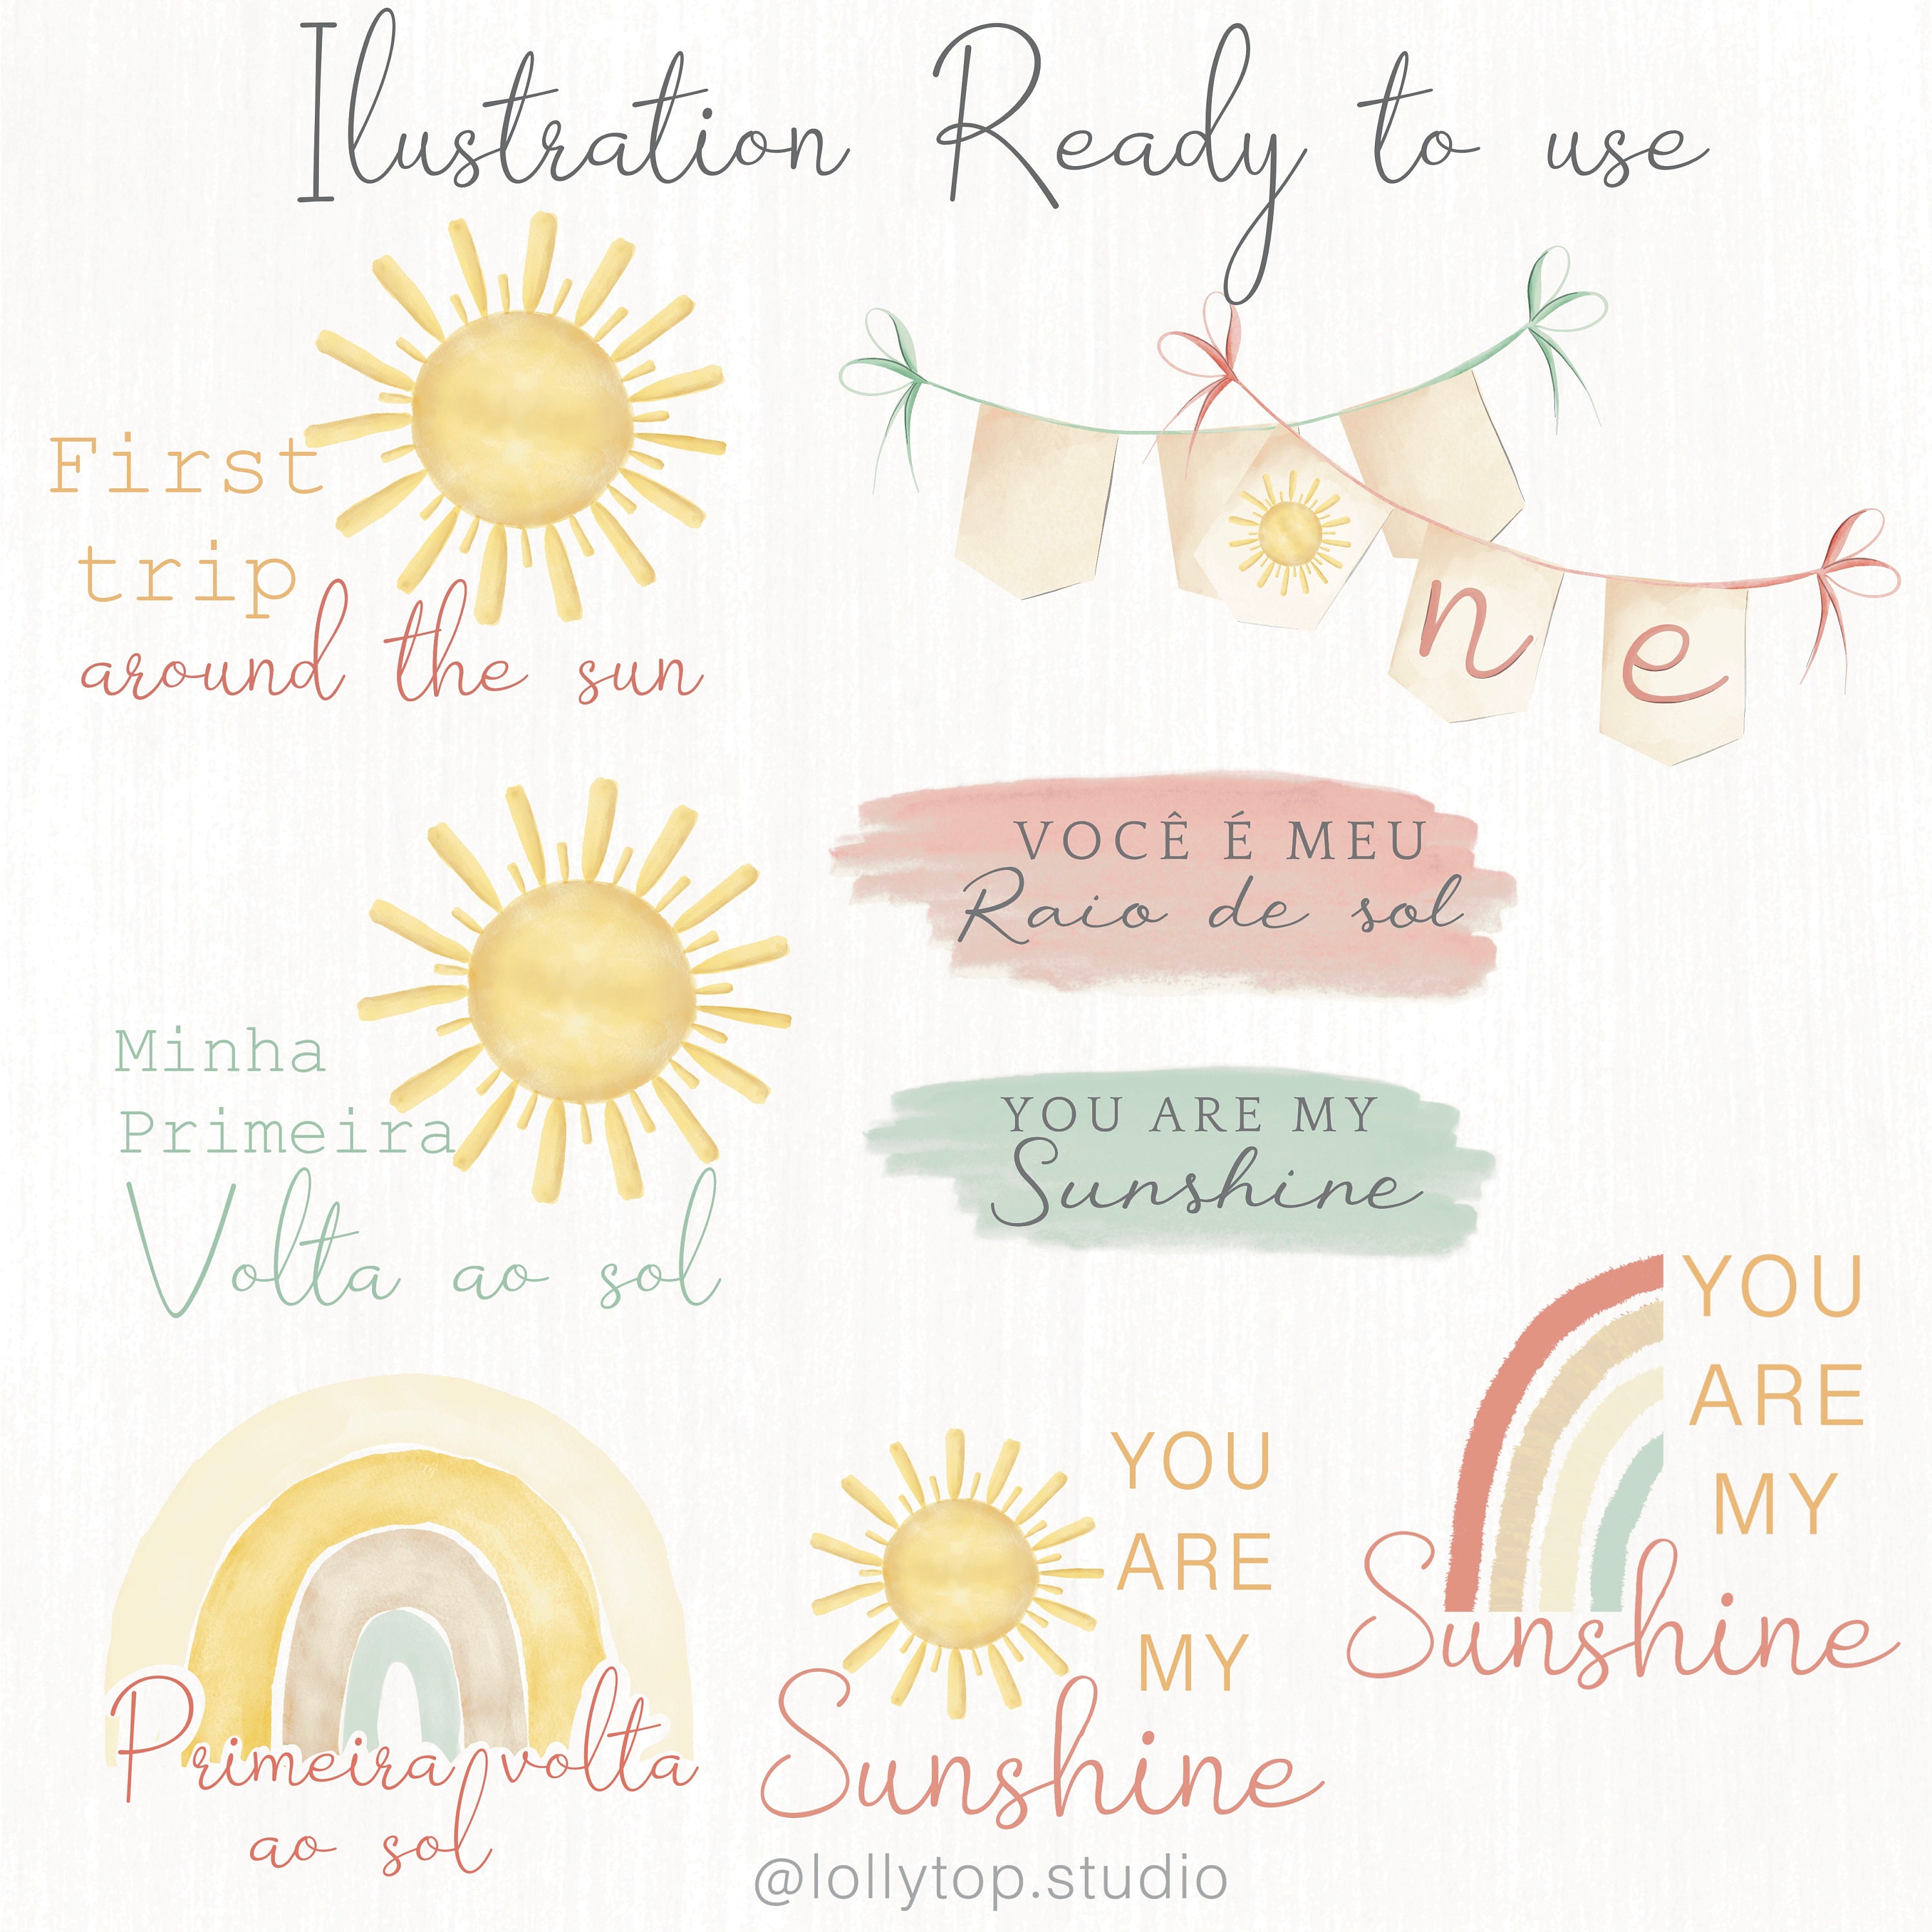 Ilustration Ready to use
First
trip
around the sun
n e
VOCÊ É MEU
Raio de sol
Minha
Primeira
Volta ao sol
YOU ARE MY
Sunshine
YOU
ARE
MY
Sunshine
Primeira volta
ao sol
YOU
ARE
MY
Sunshine
@lollytop.studio